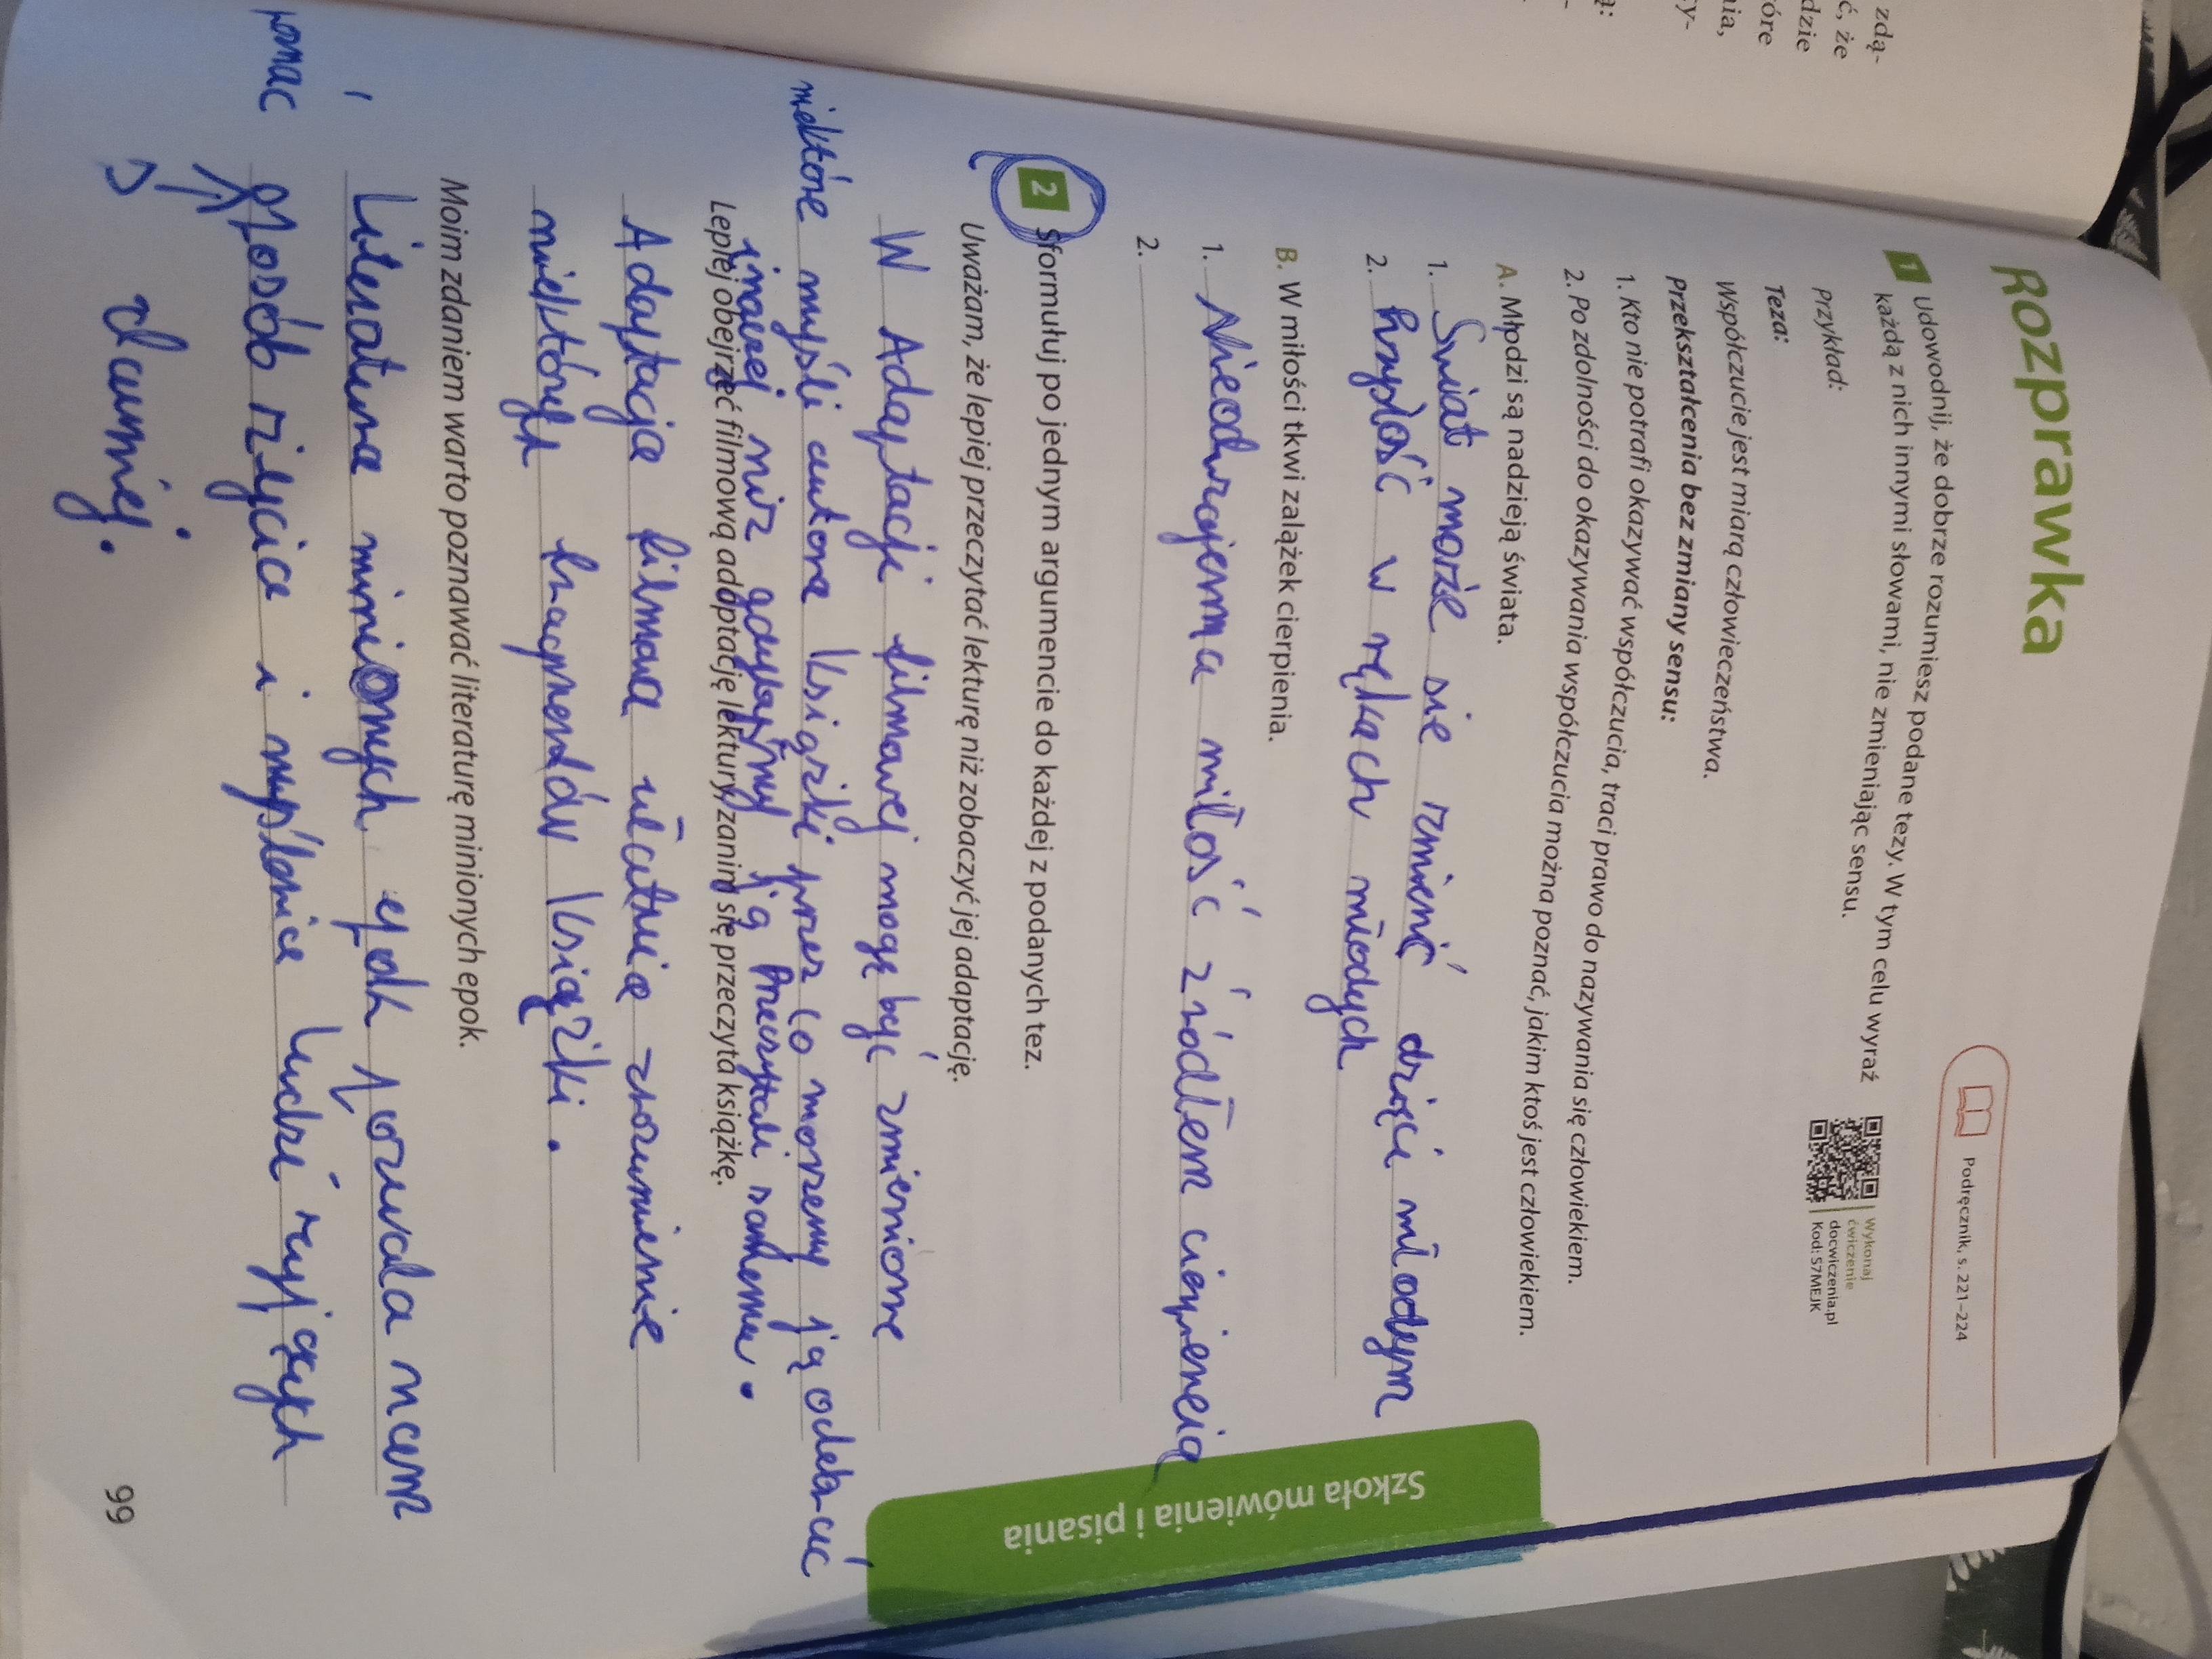 zdą-
ć, że
dzie
óre
nia,
cy-
ą:
Rozprawka
Podręcznik, s. 221–224
1 Udowodnij, że dobrze rozumiesz podane tezy. W tym celu wyraź
każdą z nich innymi słowami, nie zmieniając sensu.
Wykonaj
ćwiczenie
docwiczenia.pl
Kod: S7MEJK
Przykład:
Teza:
Współczucie jest miarą człowieczeństwa.
Przekształcenia bez zmiany sensu:
1. Kto nie potrafi okazywać współczucia, traci prawo do nazywania się człowiekiem.
2. Po zdolności do okazywania współczucia można poznać, jakim ktoś jest człowiekiem.
A. Młodzi są nadzieją świata.
1. Świat może sie zmienić dzięci młodym
2. Przyłość w rękach młodych
B. W miłości tkwi zalążek cierpienia.
1. Nieodwzajemna miłość źródłem cierpieneią
2.
2 Sformułuj po jednym argumencie do każdej z podanych tez.
Uważam, że lepiej przeczytać lekturę niż zobaczyć jej adaptację.
W Adaptacji filmowej mogę być zmienione
niektóre myśli autora książki przez co morzemy ją odebrać
inaczej niz gdybyśmy ją Przeczytali samemu.
Lepiej obejrzeć filmową adaptację lektury, zanim się przeczyta książkę.
Adaptacja filmowa ułatwia zrozumienie
niektórych fragmentów książki.
Moim zdaniem warto poznawać literaturę minionych epok.
Literatura minionych epok pozwala nam
poznać sposób rzycia i myślenia ludzi rzyjących
dawniej.
Szkoła mówienia i pisania
99